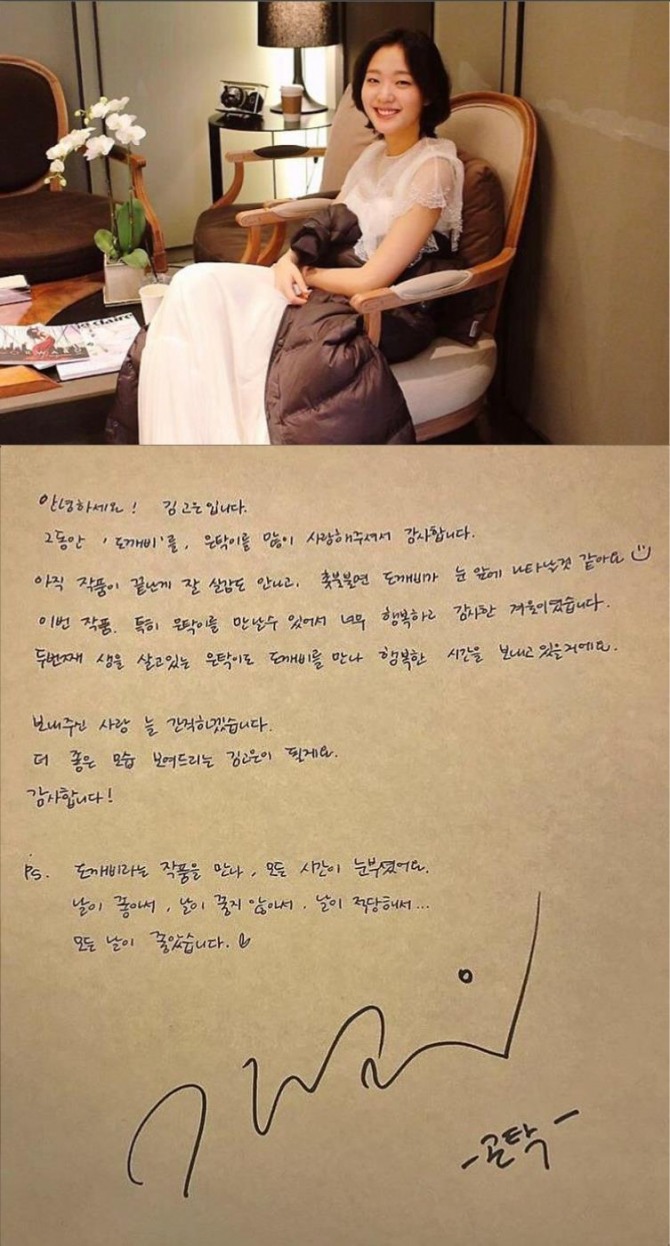 안녕하세요! 김고은입니다.
그동안 '도깨비'를, 은탁이를 많이 사랑해주셔서 감사합니다.
아직 작품이 끝난게 잘 실감도 안나고, 촛불불면 도깨비가 눈 앞에 나타날것 같아요
이번 작품. 특히 은탁이를 만날수 있어서 너무 행복하고 감사한 겨울이였습니다.
두번째 생을 살고있는 은탁이도 도깨비를 만나 행복한 시간을 보내고 있을거에요.
보내주신 사랑 늘 간직하겠습니다.
더 좋은 모습 보여드리는 김고은이 될게요.
감사합니다!
PS. 도깨비라는 작품을 만나, 모든 시간이 눈부셨어요.
날이 좋아서, 날이 좋지 않아서, 날이 적당해서...
모든 날이 좋았습니다.